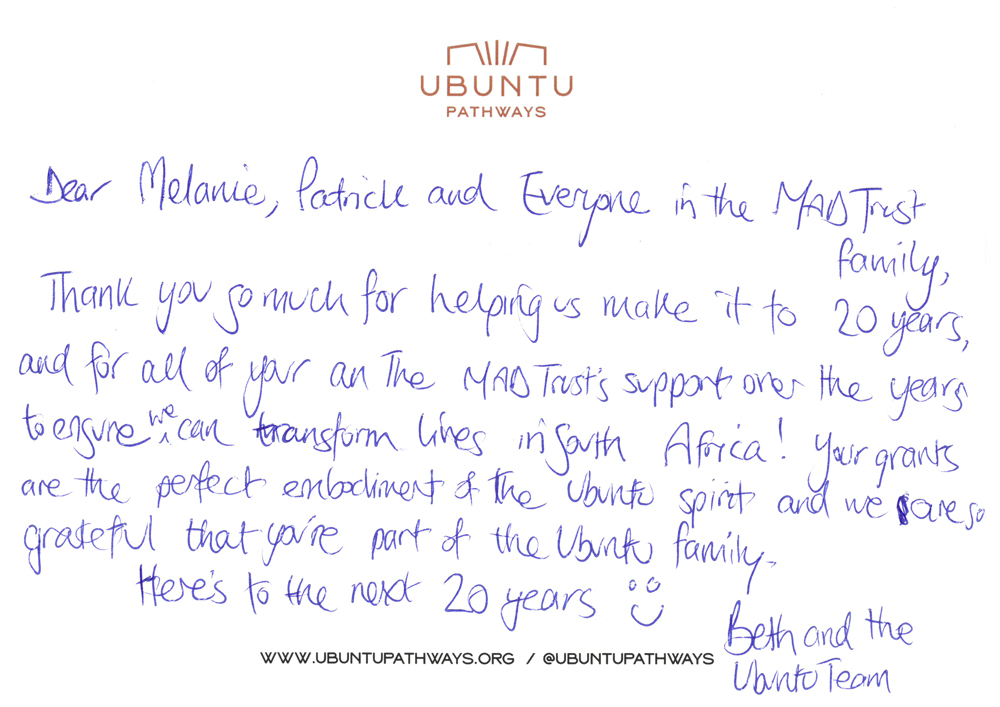 UBUNTU
PATHWAYS
Dear Melanie, Patrick and Everyone in the MAD Trust
family,
Thank you so much for helping us make it to 20 years,
and for all of your an The MAD Trust's support over the years
to ensure we can transform lives in South Africa! Your grants
are the perfect embodiment of the Ubuntu spirit and we are so
grateful that you're part of the Ubuntu family.
Here's to the next 20 years
Beth and the
Ubuntu Team
WWW.UBUNTUPATHWAYS.ORG / @UBUNTUPATHWAYS